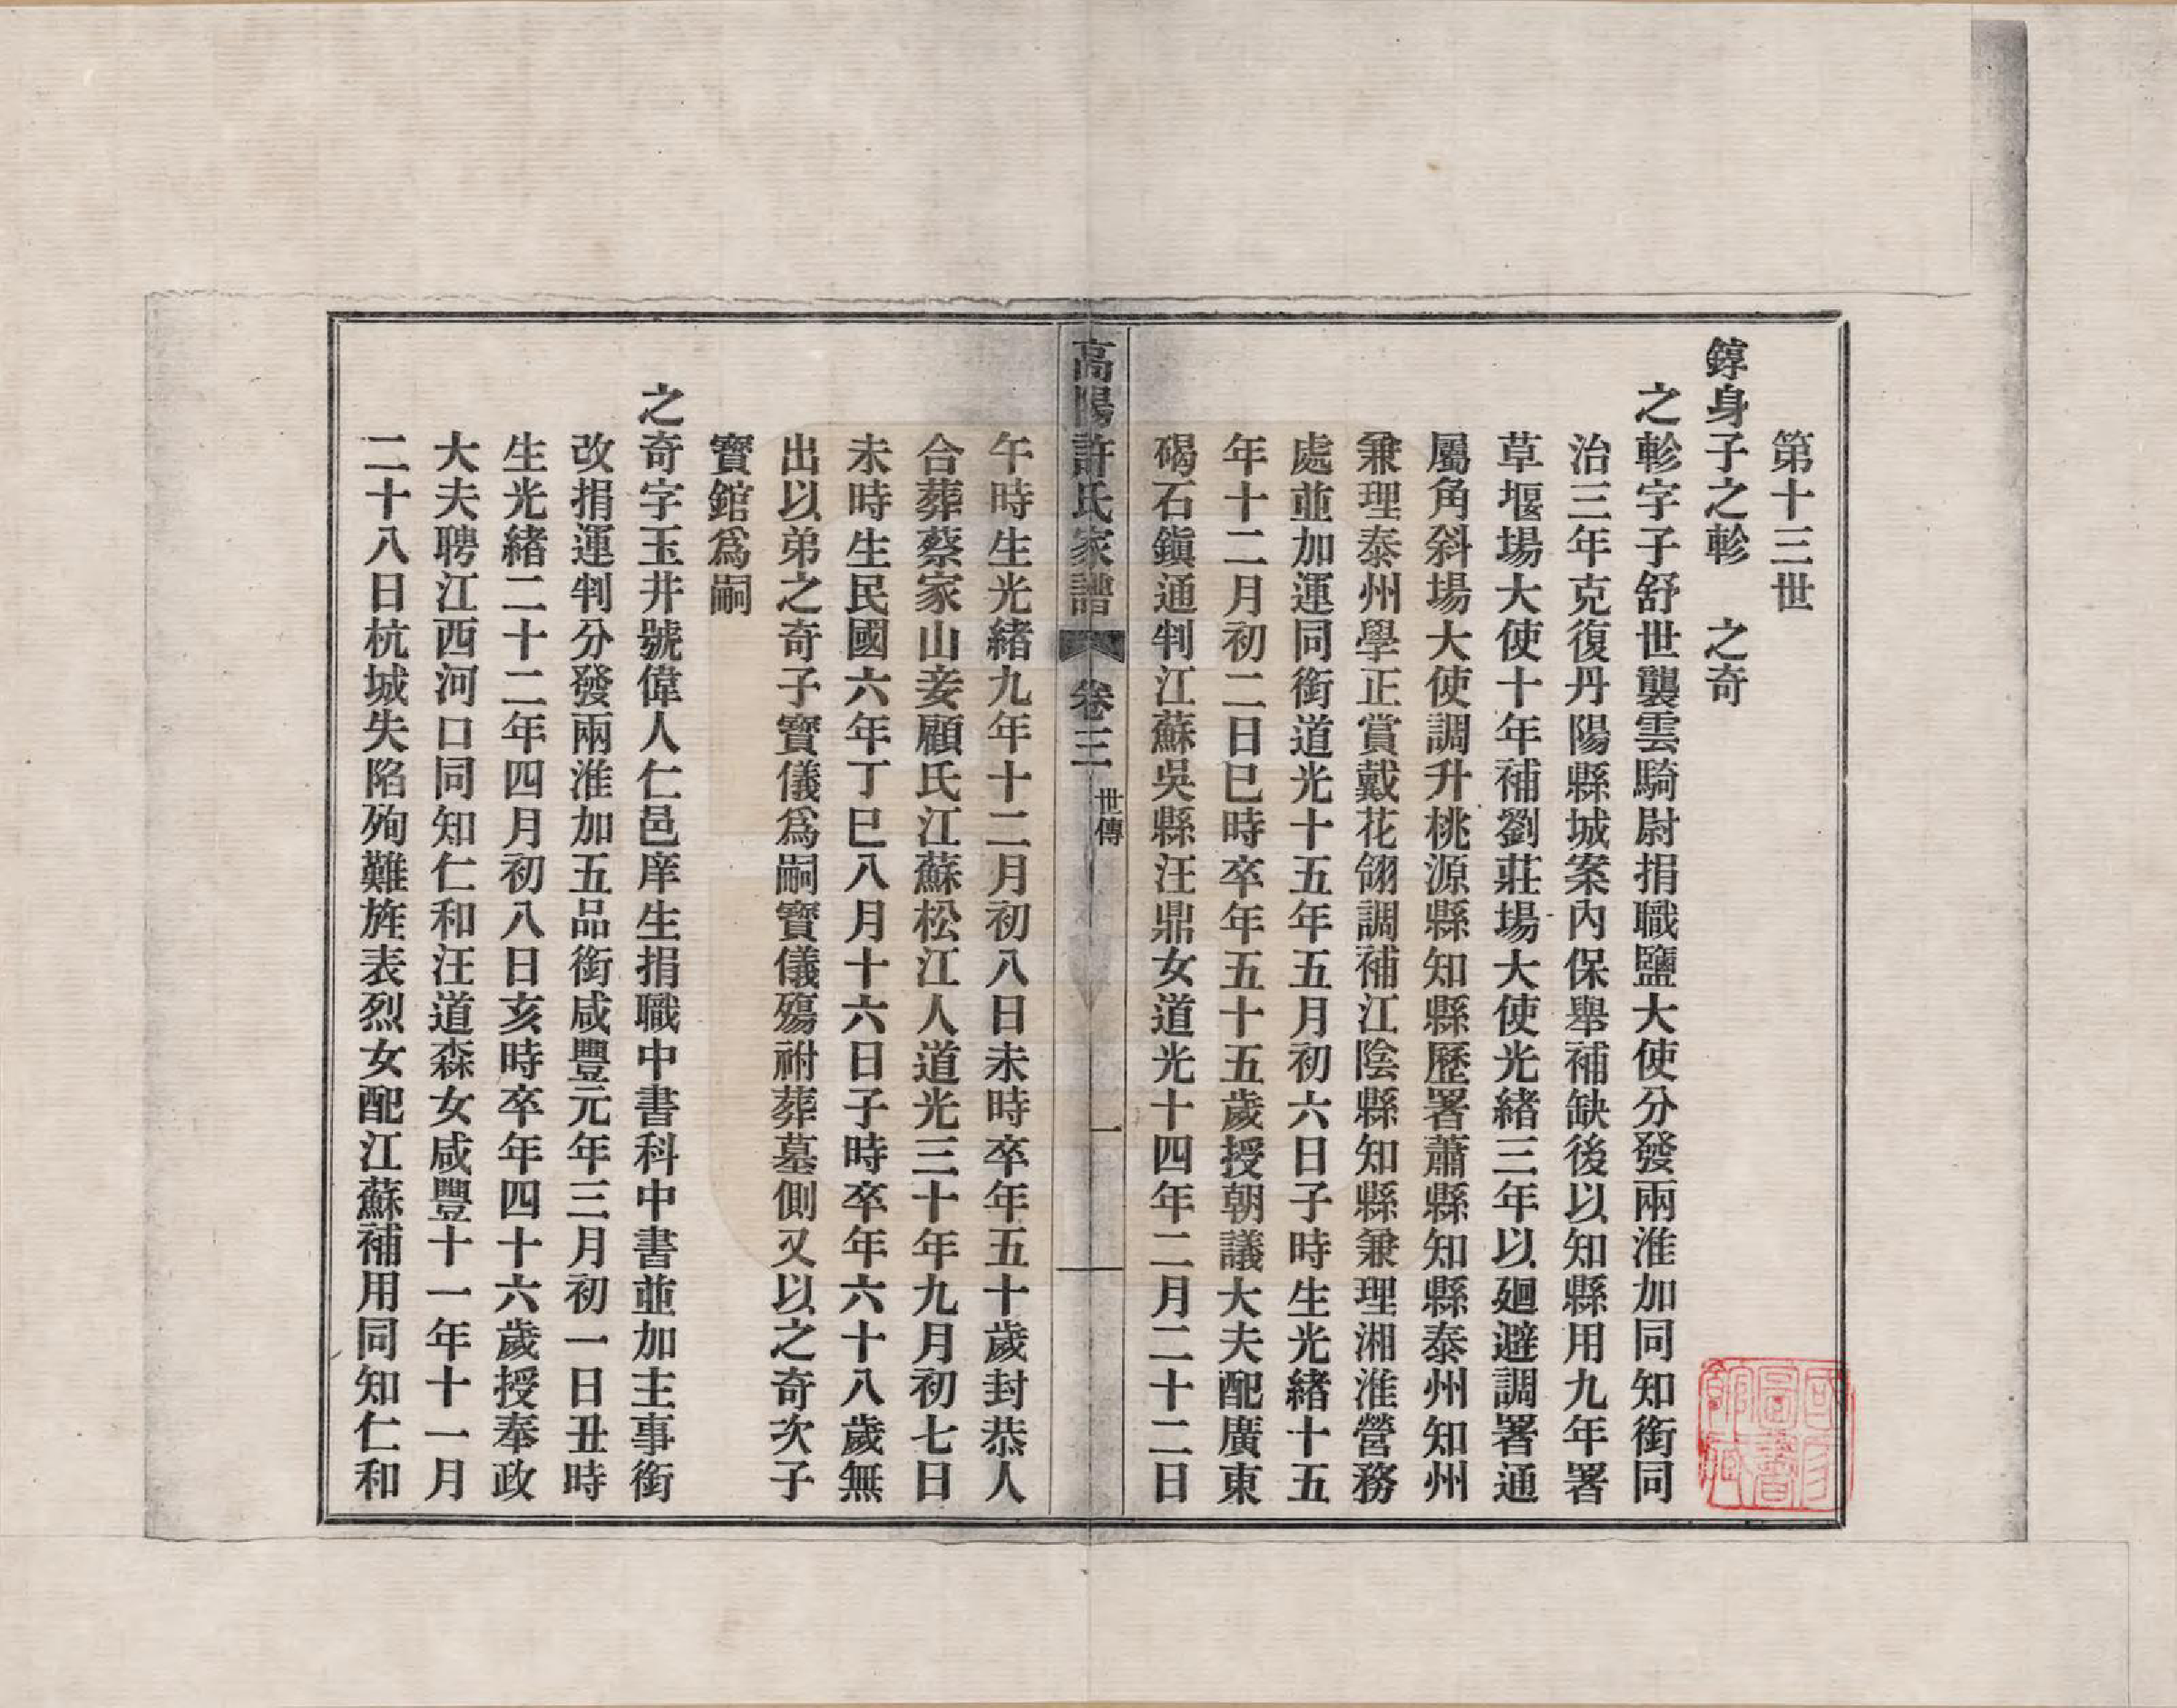 第十三世
錞身子之軫　之奇
之軫字子舒世襲雲騎尉捐職鹽大使分發兩淮加同知銜同
治三年克復丹陽縣城案內保舉補缺後以知縣用九年署
草堰場大使十年補劉莊場大使光緒三年以廻避調署通
屬角斜場大使調升桃源縣知縣歷署蕭縣知縣泰州知州
兼理泰州學正賞戴花翎調補江陰縣知縣兼理湘淮營務
處並加運同銜道光十五年五月初六日子時生光緒十五
年十二月初二日巳時卒年五十五歲授朝議大夫配廣東
碣石鎭通判江蘇吳縣汪鼎女道光十四年二月二十二日
高陽許氏家譜　卷三　世傳　一
午時生光緒九年十二月初八日未時卒年五十歲封恭人
合葬蔡家山妾顧氏江蘇松江人道光三十年九月初七日
未時生民國六年丁巳八月十六日子時卒年六十八歲無
出以弟之奇子寶儀爲嗣寶儀殤祔葬墓側又以之奇次子
寶錧爲嗣
之奇字玉井號偉人仁邑庠生捐職中書科中書並加主事銜
改捐運判分發兩淮加五品銜咸豐元年三月初一日丑時
生光緒二十二年四月初八日亥時卒年四十六歲授奉政
大夫聘江西河口同知仁和汪道森女咸豐十一年十一月
二十八日杭城失陷殉難旌表烈女配江蘇補用同知仁和
國家圖書館藏